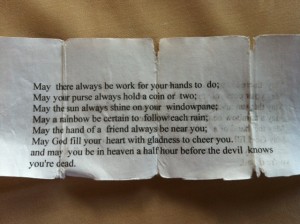 May there always be work for your hands to do;
May your purse always hold a coin or two;
May the sun always shine on your windowpane;
May a rainbow be certain to follow each rain;
May the hand of a friend always be near you;
May God fill your heart with gladness to cheer you.
and may you be in heaven a half hour before the devil knows
you're dead.